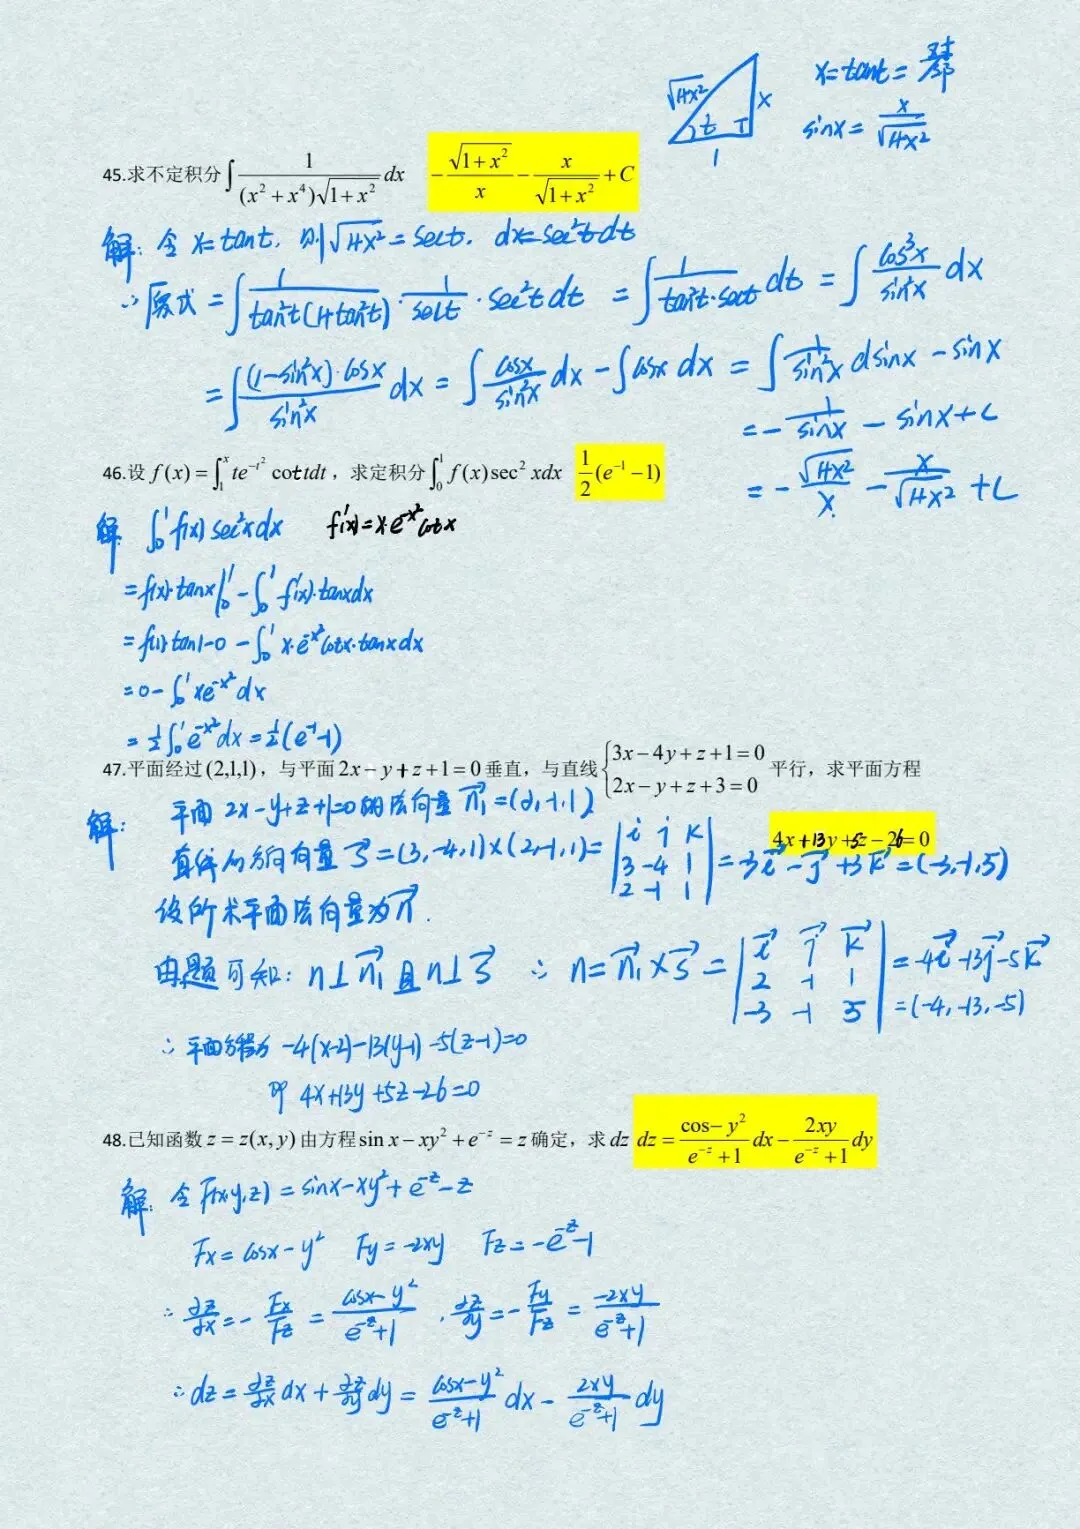 x=tant=
√1+x² x t 1
sinx= x/√1+x²
45.求不定积分∫ 1/((x²+x⁴)√1+x²) dx -√1+x²/x - x/√1+x² +C
解: 令 x=tant, 则√1+x²=sect, dx=sec²tdt
∴原式=∫ 1/(tan²t(1+tan²t)) · 1/sect · sec²tdt =∫ 1/(tan²t·sect) dt =∫ cos³x/sin²x dx
=∫ (1-sin²x)·cosx/sin²x dx =∫ cosx/sin²x dx -∫cosx dx =∫ 1/sin²x dsinx -sinx
=- 1/sinx - sinx+C
=- √1+x²/x - x/√1+x² +C
46.设 f(x)=∫₁ˣ te^(-t²) cottdt，求定积分∫₀¹ f(x)sec² xdx 1/2(e⁻¹-1)
解 ∫₀¹ f(x)sec²xdx f'(x)=x·e^(-x²)cotx
=f(x)·tanx|₀¹-∫₀¹ f'(x)·tanxdx
=f(1)·tan1-0-∫₀¹ x·e^(-x²)cotx·tanxdx
=0-∫₀¹ xe^(-x²)dx
=1/2∫₀¹e^(-x²)dx=1/2(e⁻¹-1)
47.平面经过(2,1,1)，与平面2x-y+z+1=0垂直，与直线{3x-4y+z+1=0 2x-y+z+3=0 平行，求平面方程
4x+13y+5z-26=0
解: 平面 2x-y+z+1=0的法向量 n₁=(2,-1,1)
直线的方向向量 s=(3,-4,1)×(2,-1,1)=|i j k 3 -4 1 2 -1 1|=-3i-j+3k=(-3,-1,5)
设所求平面法向量为n.
由题可知: n⊥n₁且n⊥s ∴ n=n₁×s=|i j k 2 -1 1 -3 -1 5|=-4i-13j-5k
=(-4,-13,-5)
∴ 平面方程为 -4(x-2)-13(y-1)-5(z-1)=0
即 4x+13y+5z-26=0
48.已知函数z=z(x,y)由方程sin x-xy²+e⁻ᶻ=z确定，求dz dz= cos-y²/(e⁻ᶻ+1) dx- 2xy/(e⁻ᶻ+1) dy
解: 令 F(x,y,z)=sinx-xy²+e⁻ᶻ-z
Fx=cosx-y² Fy=-2xy Fz=-e⁻ᶻ-1
∴ ∂z/∂x=- Fx/Fz = cosx-y²/(e⁻ᶻ+1) , ∂z/∂y=- Fy/Fz = -2xy/(e⁻ᶻ+1)
∴ dz= ∂z/∂x dx+ ∂z/∂y dy= cosx-y²/(e⁻ᶻ+1) dx- 2xy/(e⁻ᶻ+1) dy